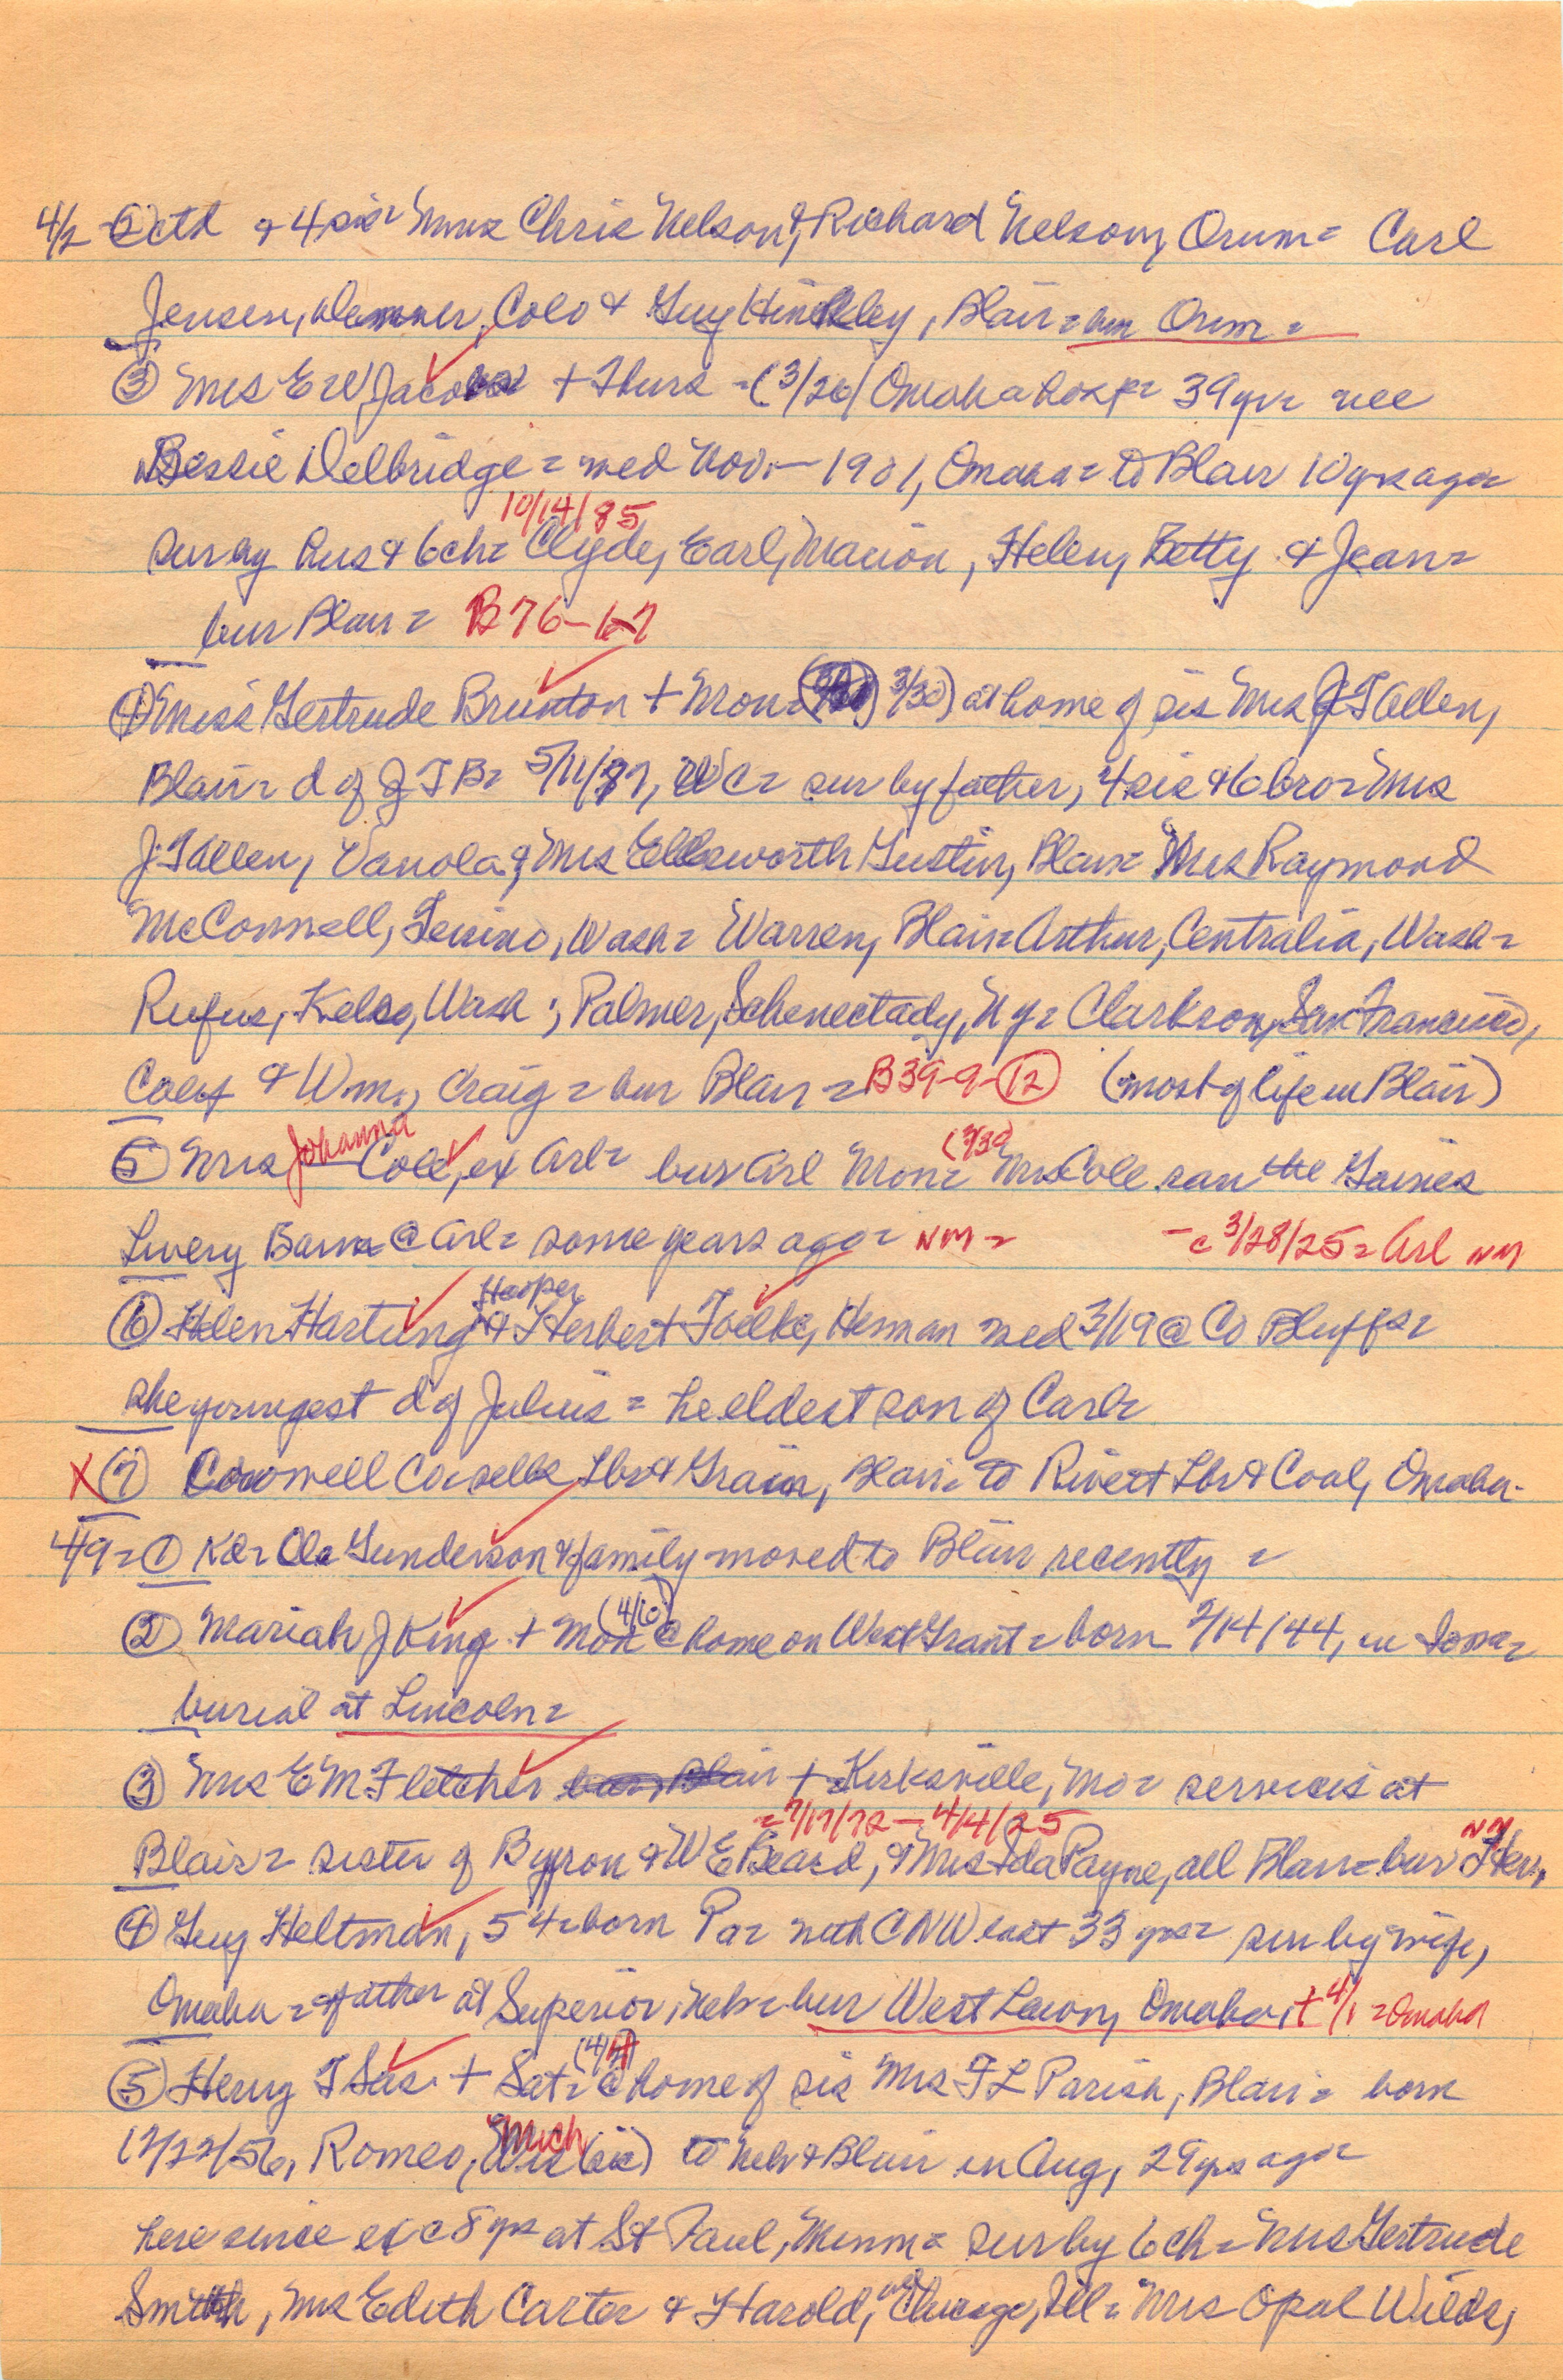 4/2 & 4 sis = Mmes Chris Nelson &, Richard Nelson, Orum = Carl
Jensen, Colo & Guy Hinckley, Blair = bur Orum =
③ Mrs E W Jacobs + Thurs - (3/26) Omaha hosp = 39 yr = nee
Bessie Delbridge = med Nov - 1901, Omaha = to Blair 10 yrs ago =
10/14/85
sur by hus & 6 ch = Clyde, Earl, Marion, Helen, Betty & Jean =
bur Blair = B76-6-7
④ Miss Gertrude Brunton + Mon = 3/30) at home of sis Mrs J T Allen,
Blair = d of J T B = 5/11/87, WC = sur by father, 4 sis & 6 bro = Mrs
J T Allen, Vanola &, Mrs Ellsworth Gustin, Blair = Mrs Raymond
McConnell, Tenino, Wash = Warren, Blair = Arthur, Centralia, Wash =
Rufus, Kelso, Wash ; Palmer, Schenectady, N Y = Clarkson, San Francisco,
Calif & Wm., Craig = bur Blair = B39-9-⑫ (most of life in Blair)
⑤ Mrs Johanna Cole, ex Arl = bur Arl Mon = (3/30) Mrs Cole ran the Gaines
Livery Barn @ Arl = some years ago = NM = - c 3/28/25 = Arl NM
⑥ Helen Hartung, Hooper & Herbert Foelke, Herman med 3/19 @ Co Bluffs =
she youngest d of Julius = he eldest son of Carl =
X ⑦ Crowell sells Lbr & Grain, Blair = to Rivett Lbr & Coal, Omaha -
4/9 = ① Kd = Ole Gunderson & family moved to Blair recently =
② Mariah J King + Mon (4/6) @ home on West Grant = born 2/14/44, in Iowa =
burial at Lincoln =
③ Mrs E M Fletcher + Kirksville, Mo = services at
= 7/17/72 - 4/4/25 NM
Blair = sister of Byron & W E Beard, & Mrs Ida Payne, all Blair = bur
④ Guy Heltman, 54 = born Pa = with CNW last 33 yrs = sur by wife,
Omaha = & father at Superior, Neb = bur West Lawn, Omaha, + 4/1 = Omaha
⑤ Henry T + Sat = (4/4) @ home of sis Mrs F L Parish, Blair = born
12/22/56, Romeo, Mich Wis (sic) to Neb & Blair in Aug, 29 yrs ago =
here since exc 8 yrs at St Paul, Minn = sur by 6 ch = Mrs Gertrude
Smith, Mrs Edith Carter & Harold, all Chicago, Ill = Mrs Opal Wilds,